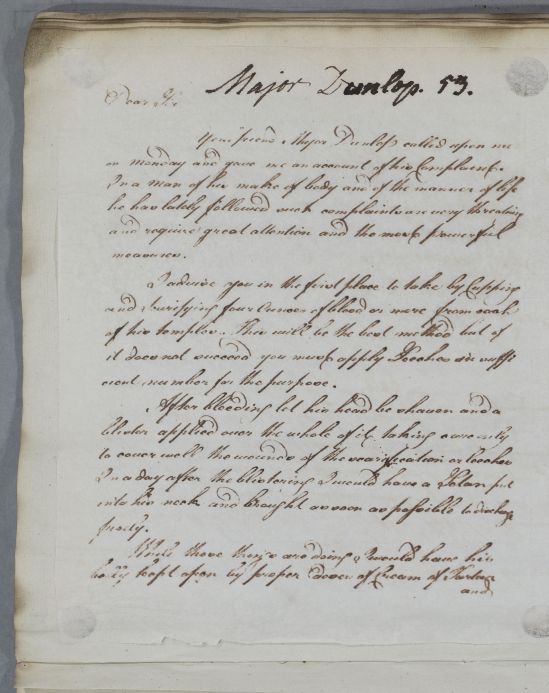 Major Dunlop. 53.
Dear Sir
Your friend Major Dunlop called upon me
on Monday and gave me an account of his Complaints.
In a man of his make of body and of the manner of life
he has lately followed such complaints are very threatning
and require great attention and the most powerful
measures.
I advise you in the first place to take by Cupping
and Scarifying four Ounces of blood or more from each
of his temples. This will be the best method but if
it does not succeed you must apply Leeches in suffi
cient number for the purpose.
After bleeding let his head be shaven and a
blister applied over the whole of it taking care only
to cover well the wounds of the scarification or leeches
In a day after the blistering I would have a Seton put
into his neck and brought as soon as possible to discharge
freely.
While these things are doing I would have his
belly kept open by proper doses of Cream of Tartar
and